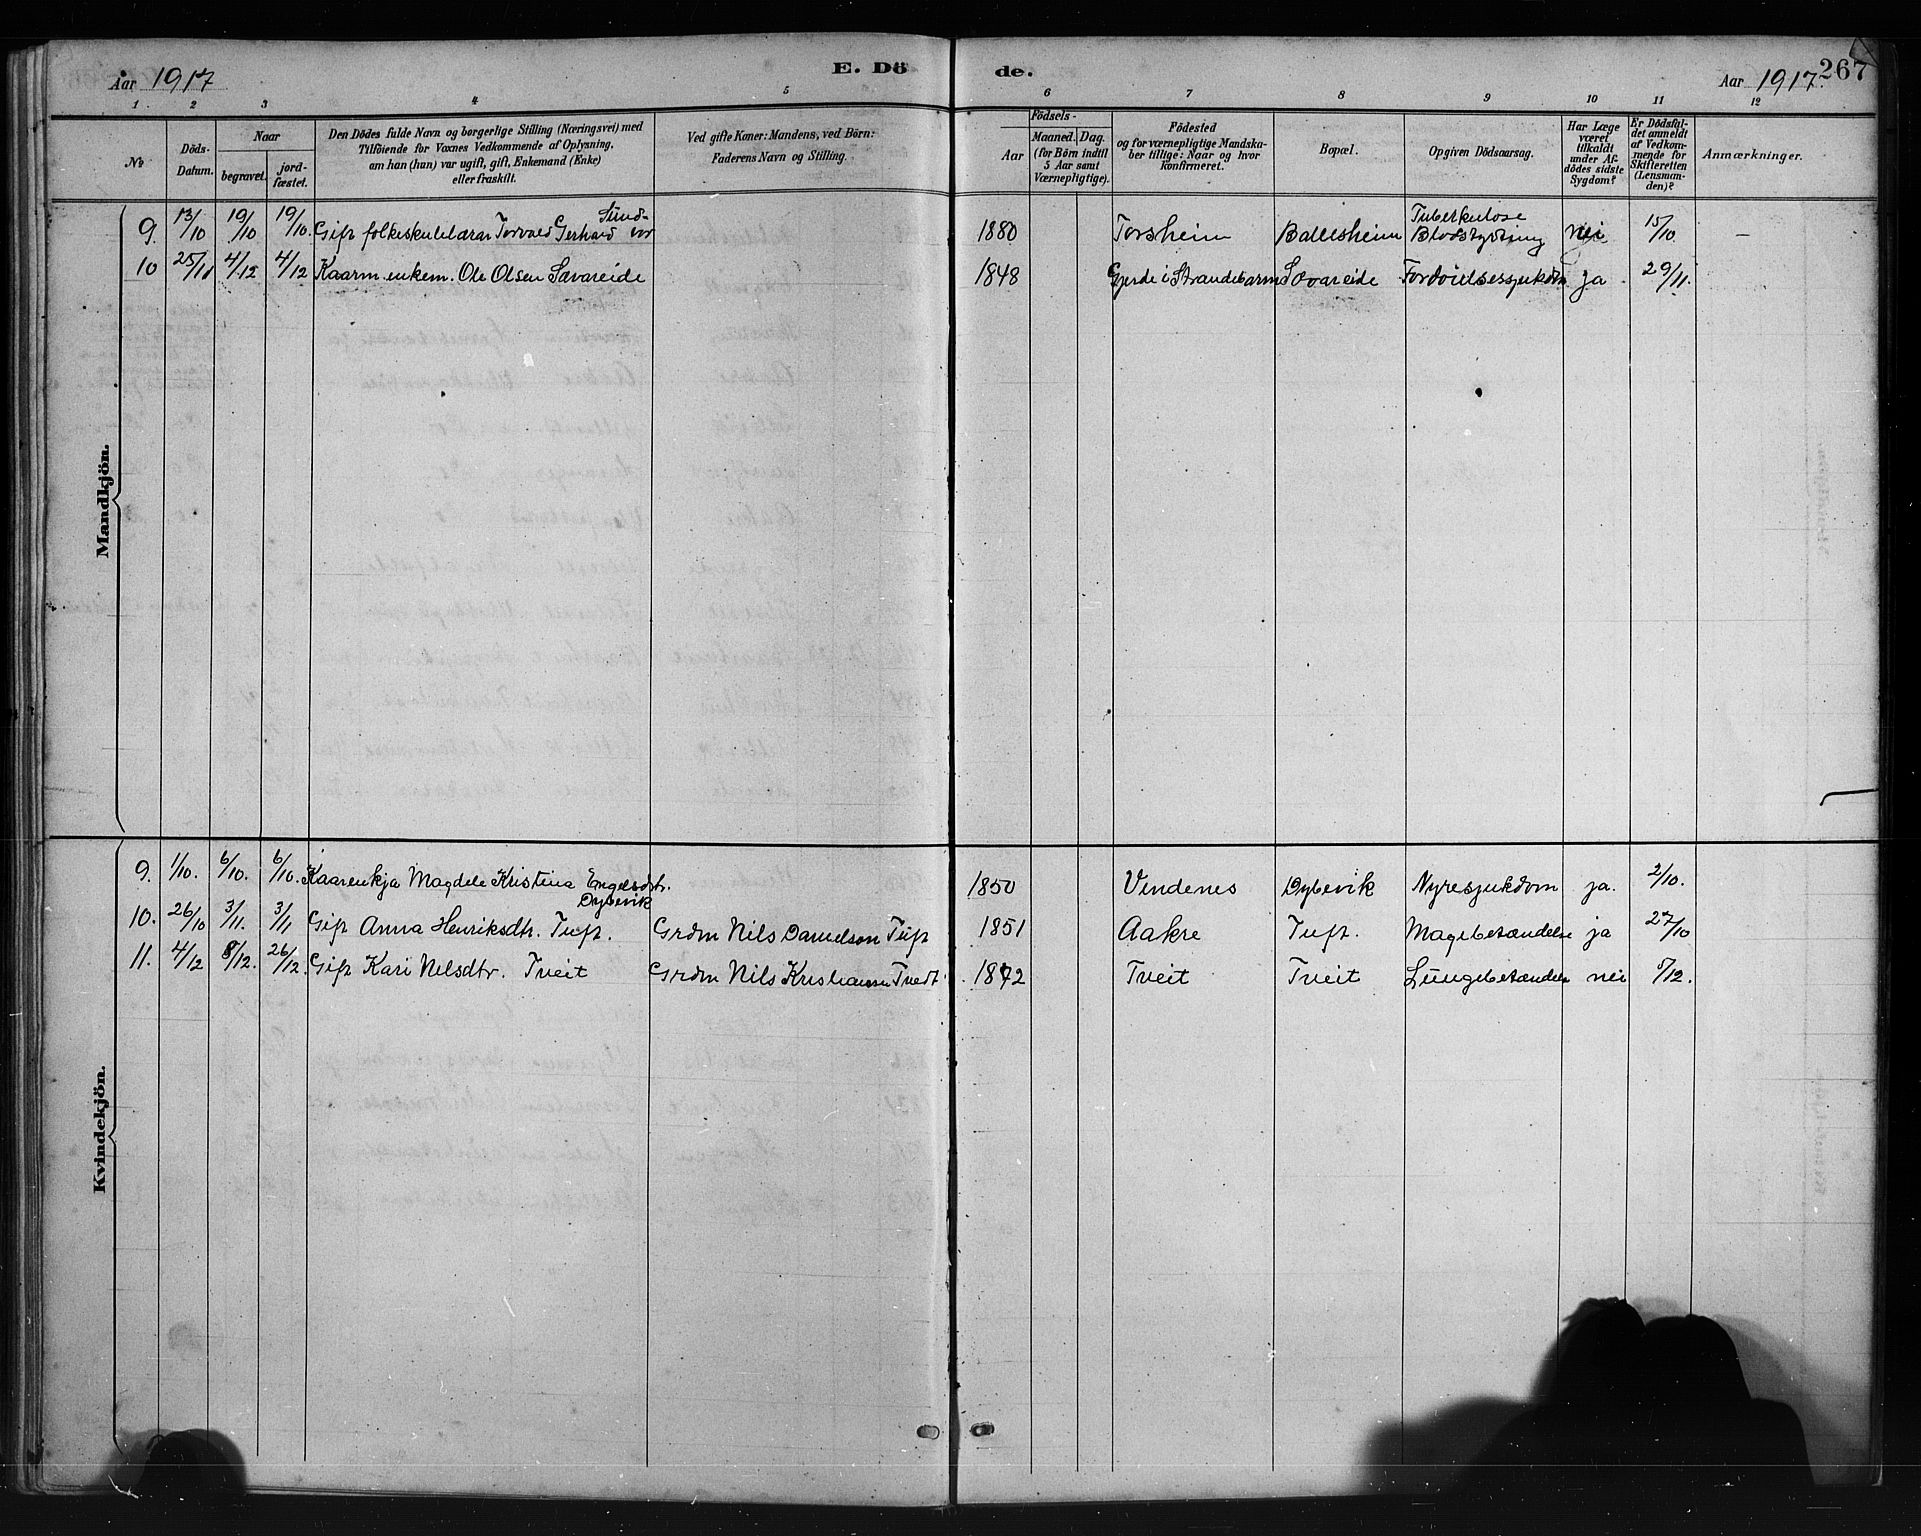 Aar 1917
E. Dö de.
Aar 1917. 267
1. 2 3 4 5 6 7 8 9 10 11 12
№
Döds-
Datum.
Naar
begravet.
jord-
fæstet.
Den Dödes fulde Navn og borgerlige Stilling (Næringsvei) med
Tilföiende for Voxnes Vedkommende af Oplysning,
om han (hun) var ugift, gift, Enkemand (Enke)
eller fraskilt.
Ved gifte Koner: Mandens, ved Börn:
Faderens Navn og Stilling.
Födsels-
Aar
Maaned. Dag.
(for Börn indtil
5 Aar samt
Værnepligtige).
Födested
og for værnepligtige Mandska-
ber tillige: Naar og hvor
konfirmeret.
Bopæl.
Opgiven Dödsaarsag.
Har Læge
været
tilkaldt
under Af-
dödes sidste
Sygdom?
Er Dödsfal-
det anmeldt
af Vedkom-
mende for
Skifteretten
(Lensman-
den)?
Anmærkninger.
Mandkjön.
9. 13/10 19/10 19/10. Gift folkeskulelærar Torvald Gerhard Sund-vor 1880 Torsheim Ballesheim Tuberkulose Blodstyrtning nei 15/10 —
10 25/11 4/12 4/12 Kaarm. enkem. Ole Olsen Sævareide 1848 Gjerde i Strandebarm Sævareide ja 29/11.
Kvindekjön.
9. 1/10. 6/10. 6/10. Kaarenkja Magdele Kristina Engelsdtr. Dybevik 1850 Vindenes Dybevik Nyresjukdom ja. 2/10.
10. 26/10 3/11. 3/11 Gift Anna Henriksdtr. Tuft. Grdm Nils Danielson Tuft 1851 Aakre Tuft. Magebetændelse ja 27/10
11. 4/12 8/12. 26/12. Gift Kari Nilsdtr. Tveit Grdm Nils Kristiansen Tvedt. 1872 Tveit Tveit Lungebetændelse nei 5/12.